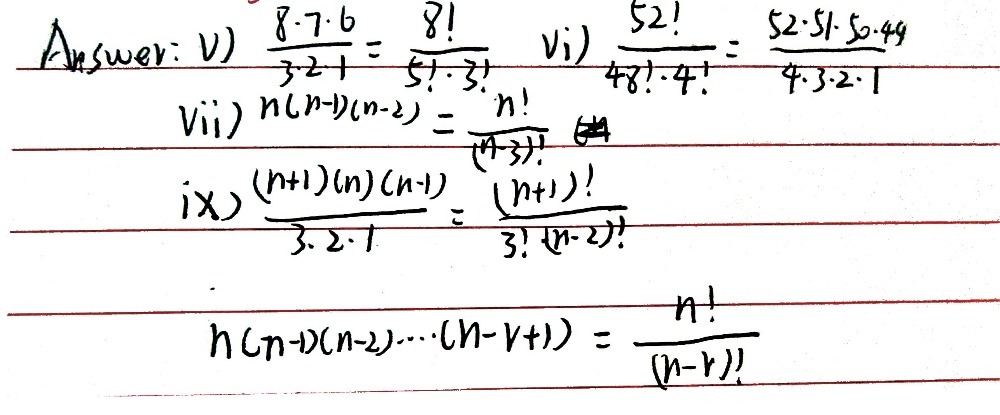 Answer: v) 8·7·6/3·2·1 = 8!/5!·3! vi) 52!/48!·4! = 52·51·50·49/4·3·2·1
vii) n(n-1)(n-2) = n!/(n-3)!
ix) (n+1)(n)(n-1)/3·2·1 = (n+1)!/3!·(n-2)!
n(n-1)(n-2)····(n-r+1) = n!/(n-r)!